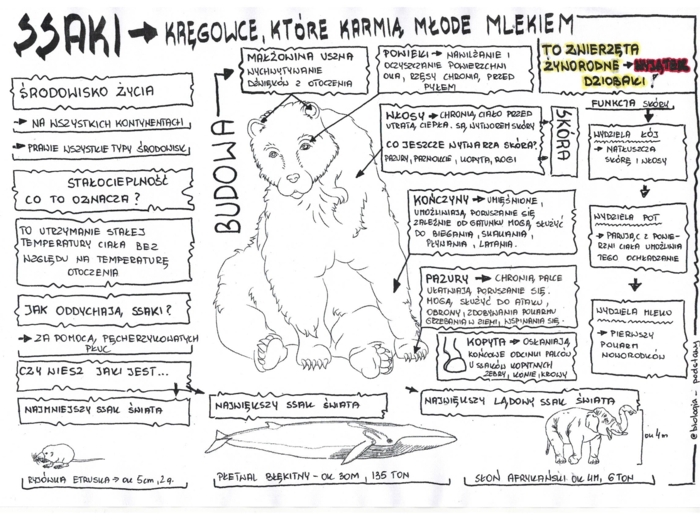 SSAKI → KRĘGOWCE, KTÓRE KARMIĄ MŁODE MLEKIEM
ŚRODOWISKO ŻYCIA
→ NA WSZYSTKICH KONTYNENTACH
→ PRAWIE WSZYSTKIE TYPY ŚRODOWISK
STAŁOCIEPLNOŚĆ
CO TO OZNACZA?
TO UTRZYMANIE STAŁEJ
TEMPERATURY CIAŁA BEZ
WZGLĘDU NA TEMPERATURĘ
OTOCZENIA
JAK ODDYCHAJĄ SSAKI?
→ ZA POMOCĄ PĘCHERZYKOWATYCH
PŁUC
CZY WIESZ JAKI JEST...
NAJMNIEJSZY SSAK ŚWIATA
RYJÓWKA ETRUSKA → OK 5cm, 2g.
BUDOWA
MAŁŻOWINA USZNA
WYCHWYTYWANIE
DŹWIĘKÓW Z OTOCZENIA
POWIEKI → NAWILŻANIE I
OCZYSZCZANIE POWIERZCHNI
OKA, RZĘSY CHRONIĄ PRZED
PYŁEM
WŁOSY → CHRONIĄ CIAŁO PRZED
UTRATĄ CIEPŁA. SĄ WYTWOREM SKÓRY
CO JESZCZE WYTWARZA SKÓRA?
PAZURY, PAZNOKCIE, KOPYTA, ROGI
SKÓRA
KOŃCZYNY → UMIĘŚNIONE,
UMOŻLIWIAJĄ PORUSZANIE SIĘ
ZALEŻNIE OD GATUNKU MOGĄ SŁUŻYĆ
DO BIEGANIA, SKAKANIA,
PŁYWANIA, LATANIA.
PAZURY → CHRONIĄ PALCE
UŁATWIAJĄ PORUSZANIE SIĘ.
MOGĄ SŁUŻYĆ DO ATAKU,
OBRONY, ZDOBYWANIA POKARMU
GRZEBANIA W ZIEMI, WSPINANIA SIĘ.
KOPYTA → OSŁANIAJĄ
KOŃCOWE ODCINKI PALCÓW
U SSAKÓW KOPYTNYCH
ZEBRY, KONIE, KROWY
TO ZWIERZĘTA
ŻYWORODNE → WYJĄTEK
DZIOBAKI!
FUNKCJA SKÓRY
WYDZIELA ŁÓJ
→ NATŁUSZCZA
SKÓRĘ I WŁOSY
WYDZIELA POT
→ PARUJĄC Z POWIE-
RZNI CIAŁA UMOŻLIWIA
JEGO OCHŁADZANIE
WYDZIELA MLEKO
→ PIERWSZY
POKARM
NOWORODKÓW
NAJWIĘKSZY SSAK ŚWIATA
PŁETWAL BŁĘKITNY - OK 30M, 135 TON
NAJWIĘKSZY LĄDOWY SSAK ŚWIATA
OK 4m
SŁOŃ AFRYKAŃSKI OK 4M, 6 TON
@biologia-podstawy